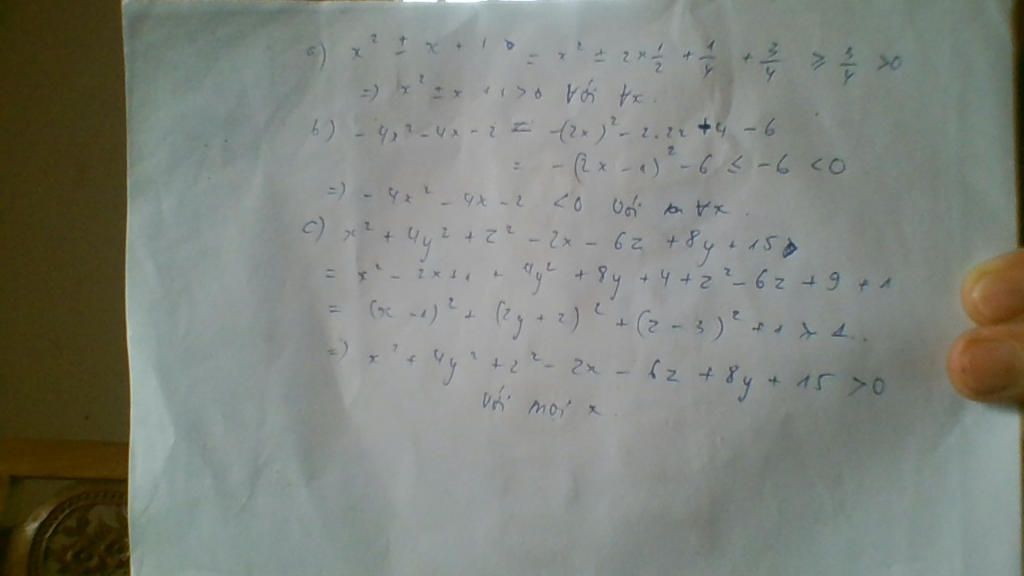 a) x² ± x + 1 = x² ± 2x 1/2 + 1/4 + 3/4 ≥ 3/4 > 0
=) x² ± x + 1 > 0 Với ∀x.
b) - 4x² - 4x - 2 = -(2x)² - 2.2x + 4 - 6
= -(2x - 1)² - 6 ≤ -6 < 0
=) - 4x² - 4x - 2 < 0 Với ∀x.
c) x² + 4y² + z² - 2x - 6z + 8y + 15
= x² - 2x + 1 + 4y² + 8y + 4 + z² - 6z + 9 + 1
= (x - 1)² + (2y + 2)² + (z - 3)² + 1 ≥ 1.
=) x² + 4y² + z² - 2x - 6z + 8y + 15 > 0
Với mọi x.